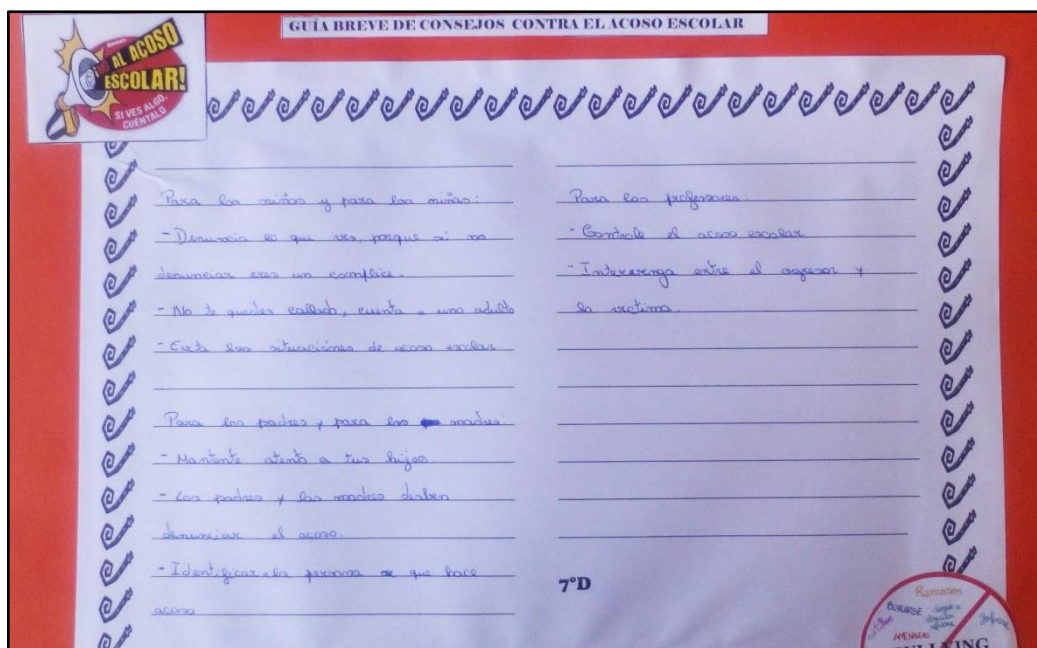 GUÍA BREVE DE CONSEJOS CONTRA EL ACOSO ESCOLAR
AL ACOSO
ESCOLAR!
SI VES ALGO,
CUÉNTALO
Para los niños y para las niñas:
- Denuncia lo que ves, porque si no
denunciar eres un complice.
- No te quedes callado, cuenta a uno adulto
- Evita las situaciónes de acoso escolar
Para los padres y para las madres:
- Mantente atento a tus hijos.
- Los padres y las madres deben
denunciar el acoso.
- Identificar la persona que hace
acoso
Para los professores:
- Controle el acoso escolar
- Intervenga entre el agresor y
la victima.
7ºD
Rumores
BURLARSE
AMENAZAS
BULLYING